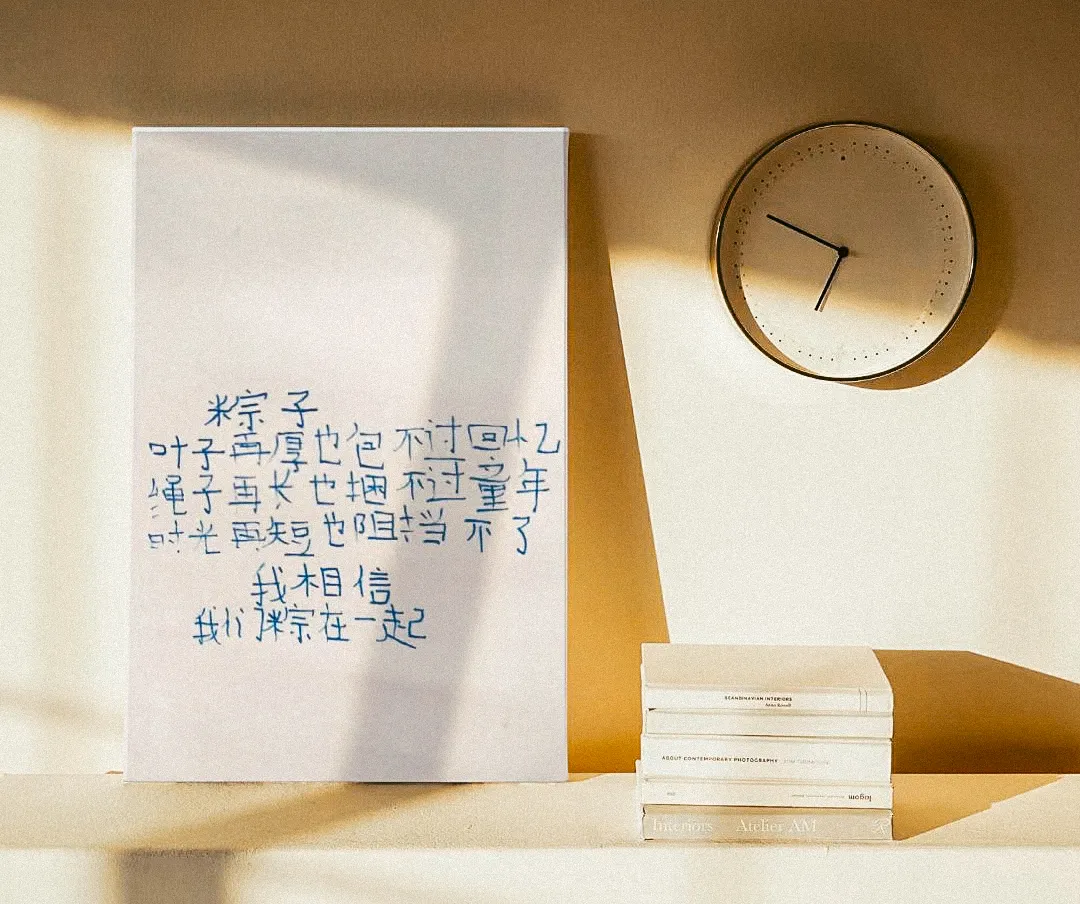 粽子
叶子再厚也包不过回忆
绳子再长也捆不过童年
时光再短也阻挡不了
我相信
我们粽在一起
SCANDINAVIAN INTERIORS
ABOUT CONTEMPORARY PHOTOGRAPHY
logom
Interiors Atelier AM